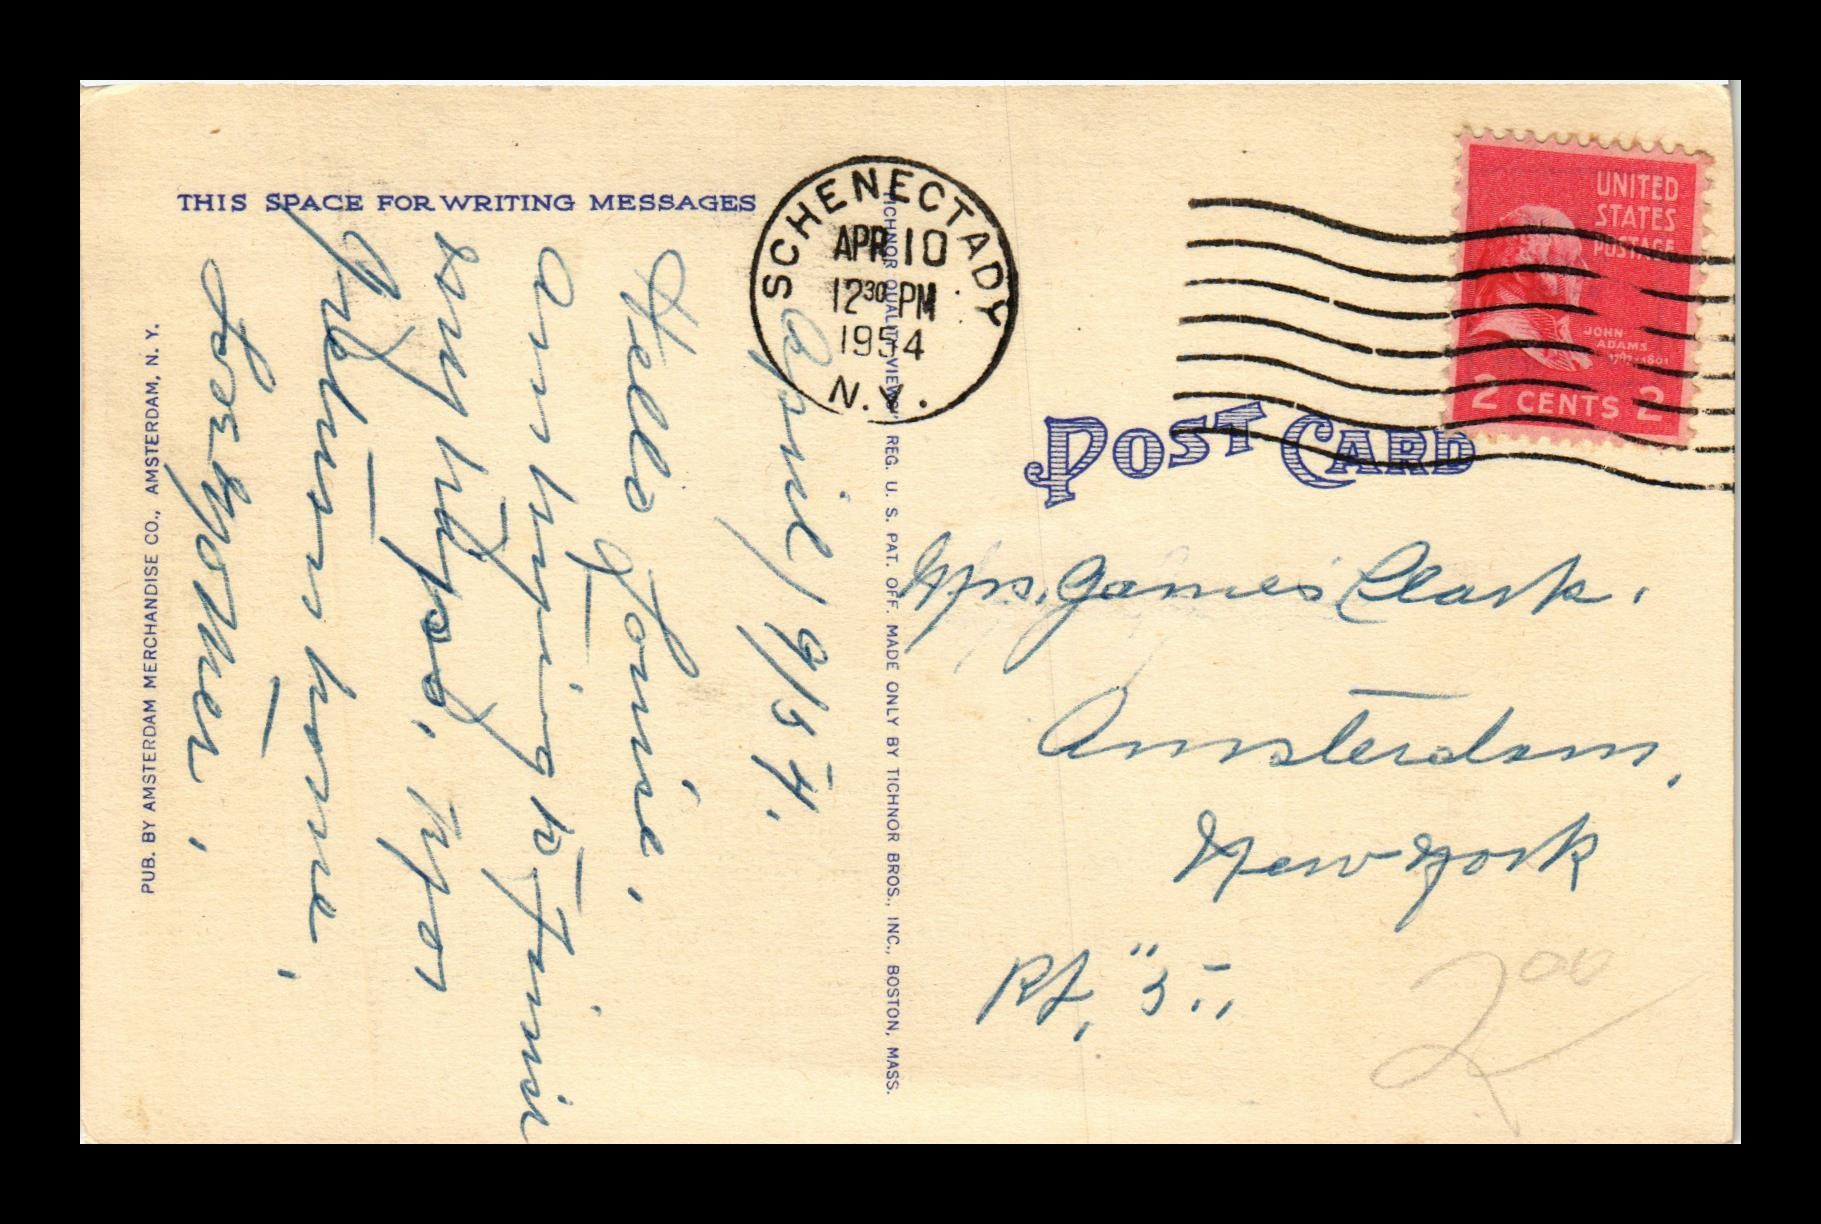 THIS SPACE FOR WRITING MESSAGES
SCHENECTADY
APR 10
12 30 PM
1954
N.Y.
UNITED
STATES
POSTAGE
JOHN
ADAMS
1797-1801
2 CENTS 2
POST CARD
April, 9/54.
Hello Louise,
Am trying to finish
my
when home,
Love
Mrs. James Clark.
Amsterdam,
New York
Rt. "5",
200
PUB. BY AMSTERDAM MERCHANDISE CO., AMSTERDAM, N. Y.
"TICHNOR QUALITY VIEWS," REG. U. S. PAT. OFF. MADE ONLY BY TICHNOR BROS., INC., BOSTON, MASS.